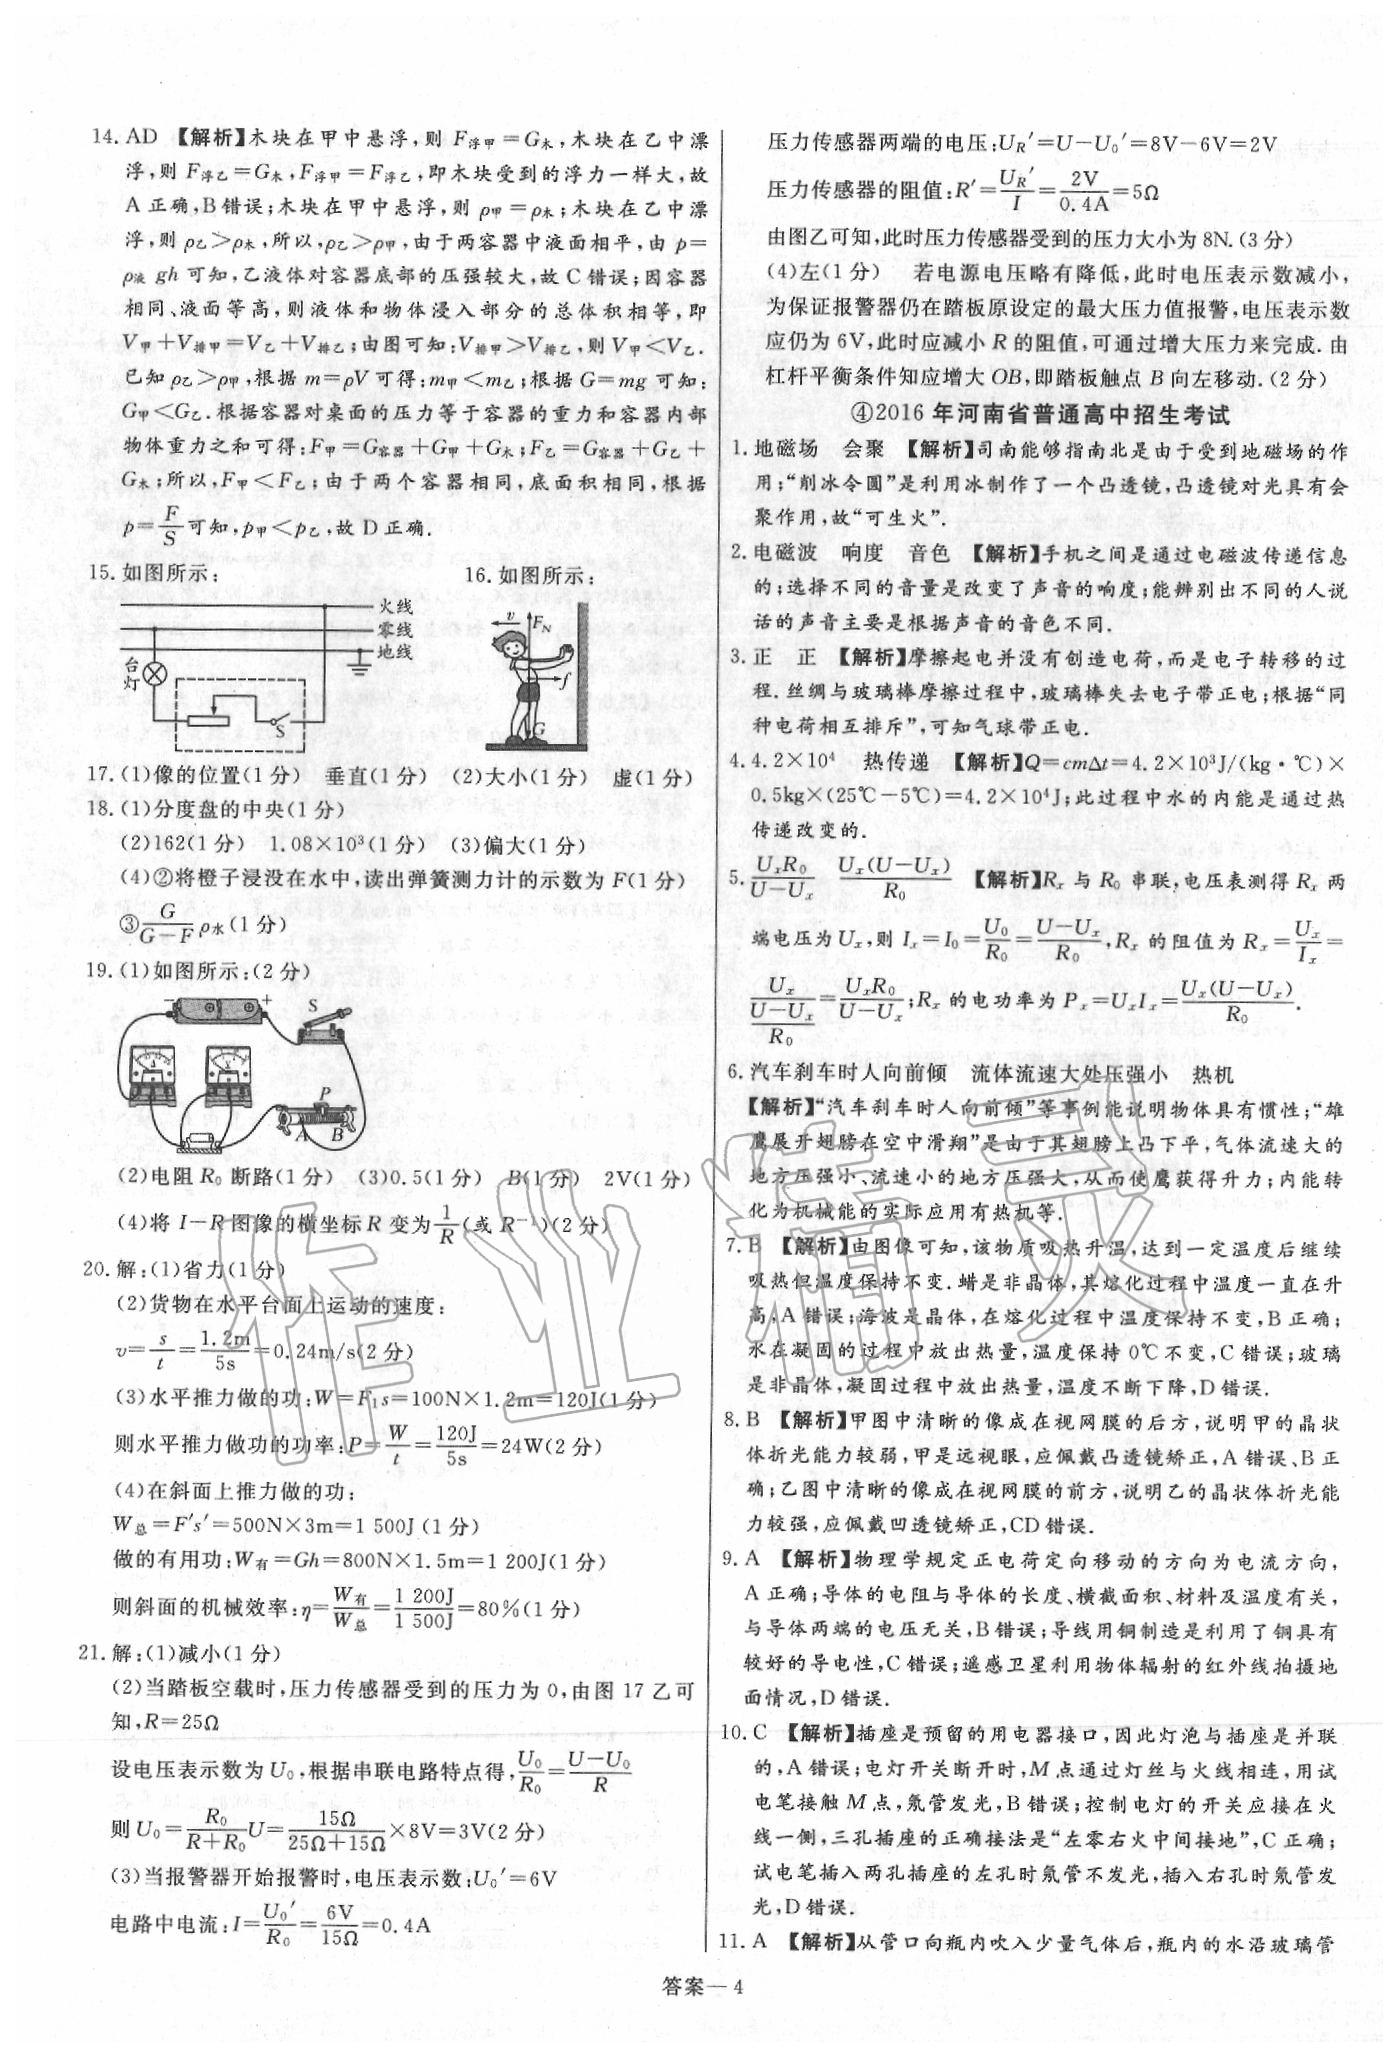 14. AD 【解析】木块在甲中悬浮,则 F浮甲=G木,木块在乙中漂
浮,则 F浮乙=G木,F浮甲=F浮乙,即木块受到的浮力一样大,故
A 正确,B 错误;木块在甲中悬浮,则 ρ甲=ρ木;木块在乙中漂
浮,则 ρ乙>ρ木,所以,ρ乙>ρ甲,由于两容器中液面相平,由 p=
ρ液 gh 可知,乙液体对容器底部的压强较大,故 C 错误;因容器
相同、液面等高,则液体和物体浸入部分的总体积相等,即
V甲+V排甲=V乙+V排乙;由图可知:V排甲>V排乙,则 V甲<V乙.
已知 ρ乙>ρ甲,根据 m=ρV 可得:m甲<m乙;根据 G=mg 可知:
G甲<G乙.根据容器对桌面的压力等于容器的重力和容器内部
物体重力之和可得:F甲=G容器+G甲+G木;F乙=G容器+G乙+
G木;所以,F甲<F乙;由于两个容器相同,底面积相同,根据
p=F/S可知,p甲<p乙,故 D 正确.
15. 如图所示: 16. 如图所示:
火线
零线
地线
台灯
S
v F_N
f
G
17. (1)像的位置(1 分) 垂直(1 分) (2)大小(1 分) 虚(1 分)
18. (1)分度盘的中央(1 分)
(2)162(1 分) 1.08×10³(1 分) (3)偏大(1 分)
(4)②将橙子浸没在水中,读出弹簧测力计的示数为 F(1 分)
③G/(G−F)ρ水(1 分)
19. (1)如图所示:(2 分)
− + S
A V
P
A B
(2)电阻 R₀ 断路(1 分) (3)0.5(1 分) B(1 分) 2V(1 分)
(4)将 I−R 图像的横坐标 R 变为1/R(或 R⁻¹)(2 分)
20. 解:(1)省力(1 分)
(2)货物在水平台面上运动的速度:
v=s/t=1.2m/5s=0.24m/s(2 分)
(3)水平推力做的功:W=F₁s=100N×1.2m=120J(1 分)
则水平推力做功的功率:P=W/t=120J/5s=24W(2 分)
(4)在斜面上推力做的功:
W总=F′s′=500N×3m=1 500J(1 分)
做的有用功:W有=Gh=800N×1.5m=1 200J(1 分)
则斜面的机械效率:η=W有/W总=1 200J/1 500J=80%(1 分)
21. 解:(1)减小(1 分)
(2)当踏板空载时,压力传感器受到的压力为 0,由图 17 乙可
知,R=25Ω
设电压表示数为 U₀,根据串联电路特点得,U₀/R₀=(U−U₀)/R
则 U₀=R₀/(R+R₀)U=15Ω/(25Ω+15Ω)×8V=3V(2 分)
(3)当报警器开始报警时,电压表示数:U₀′=6V
电路中电流:I=U₀′/R₀=6V/15Ω=0.4A
压力传感器两端的电压:U_R′=U−U₀′=8V−6V=2V
压力传感器的阻值:R′=U_R′/I=2V/0.4A=5Ω
由图乙可知,此时压力传感器受到的压力大小为 8N.(3 分)
(4)左(1 分) 若电源电压略有降低,此时电压表示数减小,
为保证报警器仍在踏板原设定的最大压力值报警,电压表示数
应仍为 6V,此时应减小 R 的阻值,可通过增大压力来完成.由
杠杆平衡条件知应增大 OB,即踏板触点 B 向左移动.(2 分)
④2016 年河南省普通高中招生考试
1. 地磁场 会聚 【解析】司南能够指南北是由于受到地磁场的作
用;“削冰令圆”是利用冰制作了一个凸透镜,凸透镜对光具有会
聚作用,故“可生火”.
2. 电磁波 响度 音色 【解析】手机之间是通过电磁波传递信息
的;选择不同的音量是改变了声音的响度;能辨别出不同的人说
话的声音主要是根据声音的音色不同.
3. 正 正 【解析】摩擦起电并没有创造电荷,而是电子转移的过
程.丝绸与玻璃棒摩擦过程中,玻璃棒失去电子带正电;根据“同
种电荷相互排斥”,可知气球带正电.
4. 4.2×10⁴ 热传递 【解析】Q=cmΔt=4.2×10³J/(kg·℃)×
0.5kg×(25℃−5℃)=4.2×10⁴J;此过程中水的内能是通过热
传递改变的.
5. UₓR₀/(U−Uₓ) Uₓ(U−Uₓ)/R₀ 【解析】Rₓ 与 R₀ 串联,电压表测得 Rₓ 两
端电压为 Uₓ,则 Iₓ=I₀=U₀/R₀=(U−Uₓ)/R₀,Rₓ 的阻值为 Rₓ=Uₓ/Iₓ=
Uₓ/((U−Uₓ)/R₀)=UₓR₀/(U−Uₓ);Rₓ 的电功率为 Pₓ=UₓIₓ=Uₓ(U−Uₓ)/R₀.
6. 汽车刹车时人向前倾 流体流速大处压强小 热机
【解析】“汽车刹车时人向前倾”等事例能说明物体具有惯性;“雄
鹰展开翅膀在空中滑翔”是由于其翅膀上凸下平,气体流速大的
地方压强小、流速小的地方压强大,从而使鹰获得升力;内能转
化为机械能的实际应用有热机等.
7. B 【解析】由图像可知,该物质吸热升温,达到一定温度后继续
吸热但温度保持不变.蜡是非晶体,其熔化过程中温度一直在升
高,A 错误;海波是晶体,在熔化过程中温度保持不变,B 正确;
水在凝固的过程中放出热量,温度保持 0℃不变,C 错误;玻璃
是非晶体,凝固过程中放出热量,温度不断下降,D 错误.
8. B 【解析】甲图中清晰的像成在视网膜的后方,说明甲的晶状
体折光能力较弱,甲是远视眼,应佩戴凸透镜矫正,A 错误、B 正
确;乙图中清晰的像成在视网膜的前方,说明乙的晶状体折光能
力较强,应佩戴凹透镜矫正,CD 错误.
9. A 【解析】物理学规定正电荷定向移动的方向为电流方向,
A 正确;导体的电阻与导体的长度、横截面积、材料及温度有关,
与导体两端的电压无关,B 错误;导线用铜制造是利用了铜具有
较好的导电性,C 错误;遥感卫星利用物体辐射的红外线拍摄地
面情况,D 错误.
10. C 【解析】插座是预留的用电器接口,因此灯泡与插座是并联
的,A 错误;电灯开关断开时,M 点通过灯丝与火线相连,用试
电笔接触 M 点,氖管发光,B 错误;控制电灯的开关应接在火
线一侧,三孔插座的正确接法是“左零右火中间接地”,C 正确;
试电笔插入两孔插座的左孔时氖管不发光,插入右孔时氖管发
光,D 错误.
11. A 【解析】从管口向瓶内吹入少量气体后,瓶内的水沿玻璃管
作业精灵
答案—4